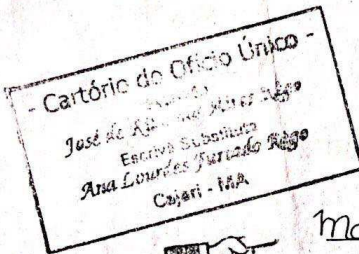 - Cartório do Ofício Único -
José de Ribamar Aires Rêgo
Escrivã Substituta
Ana Lourdes Furtado Rêgo
Cajari - MA